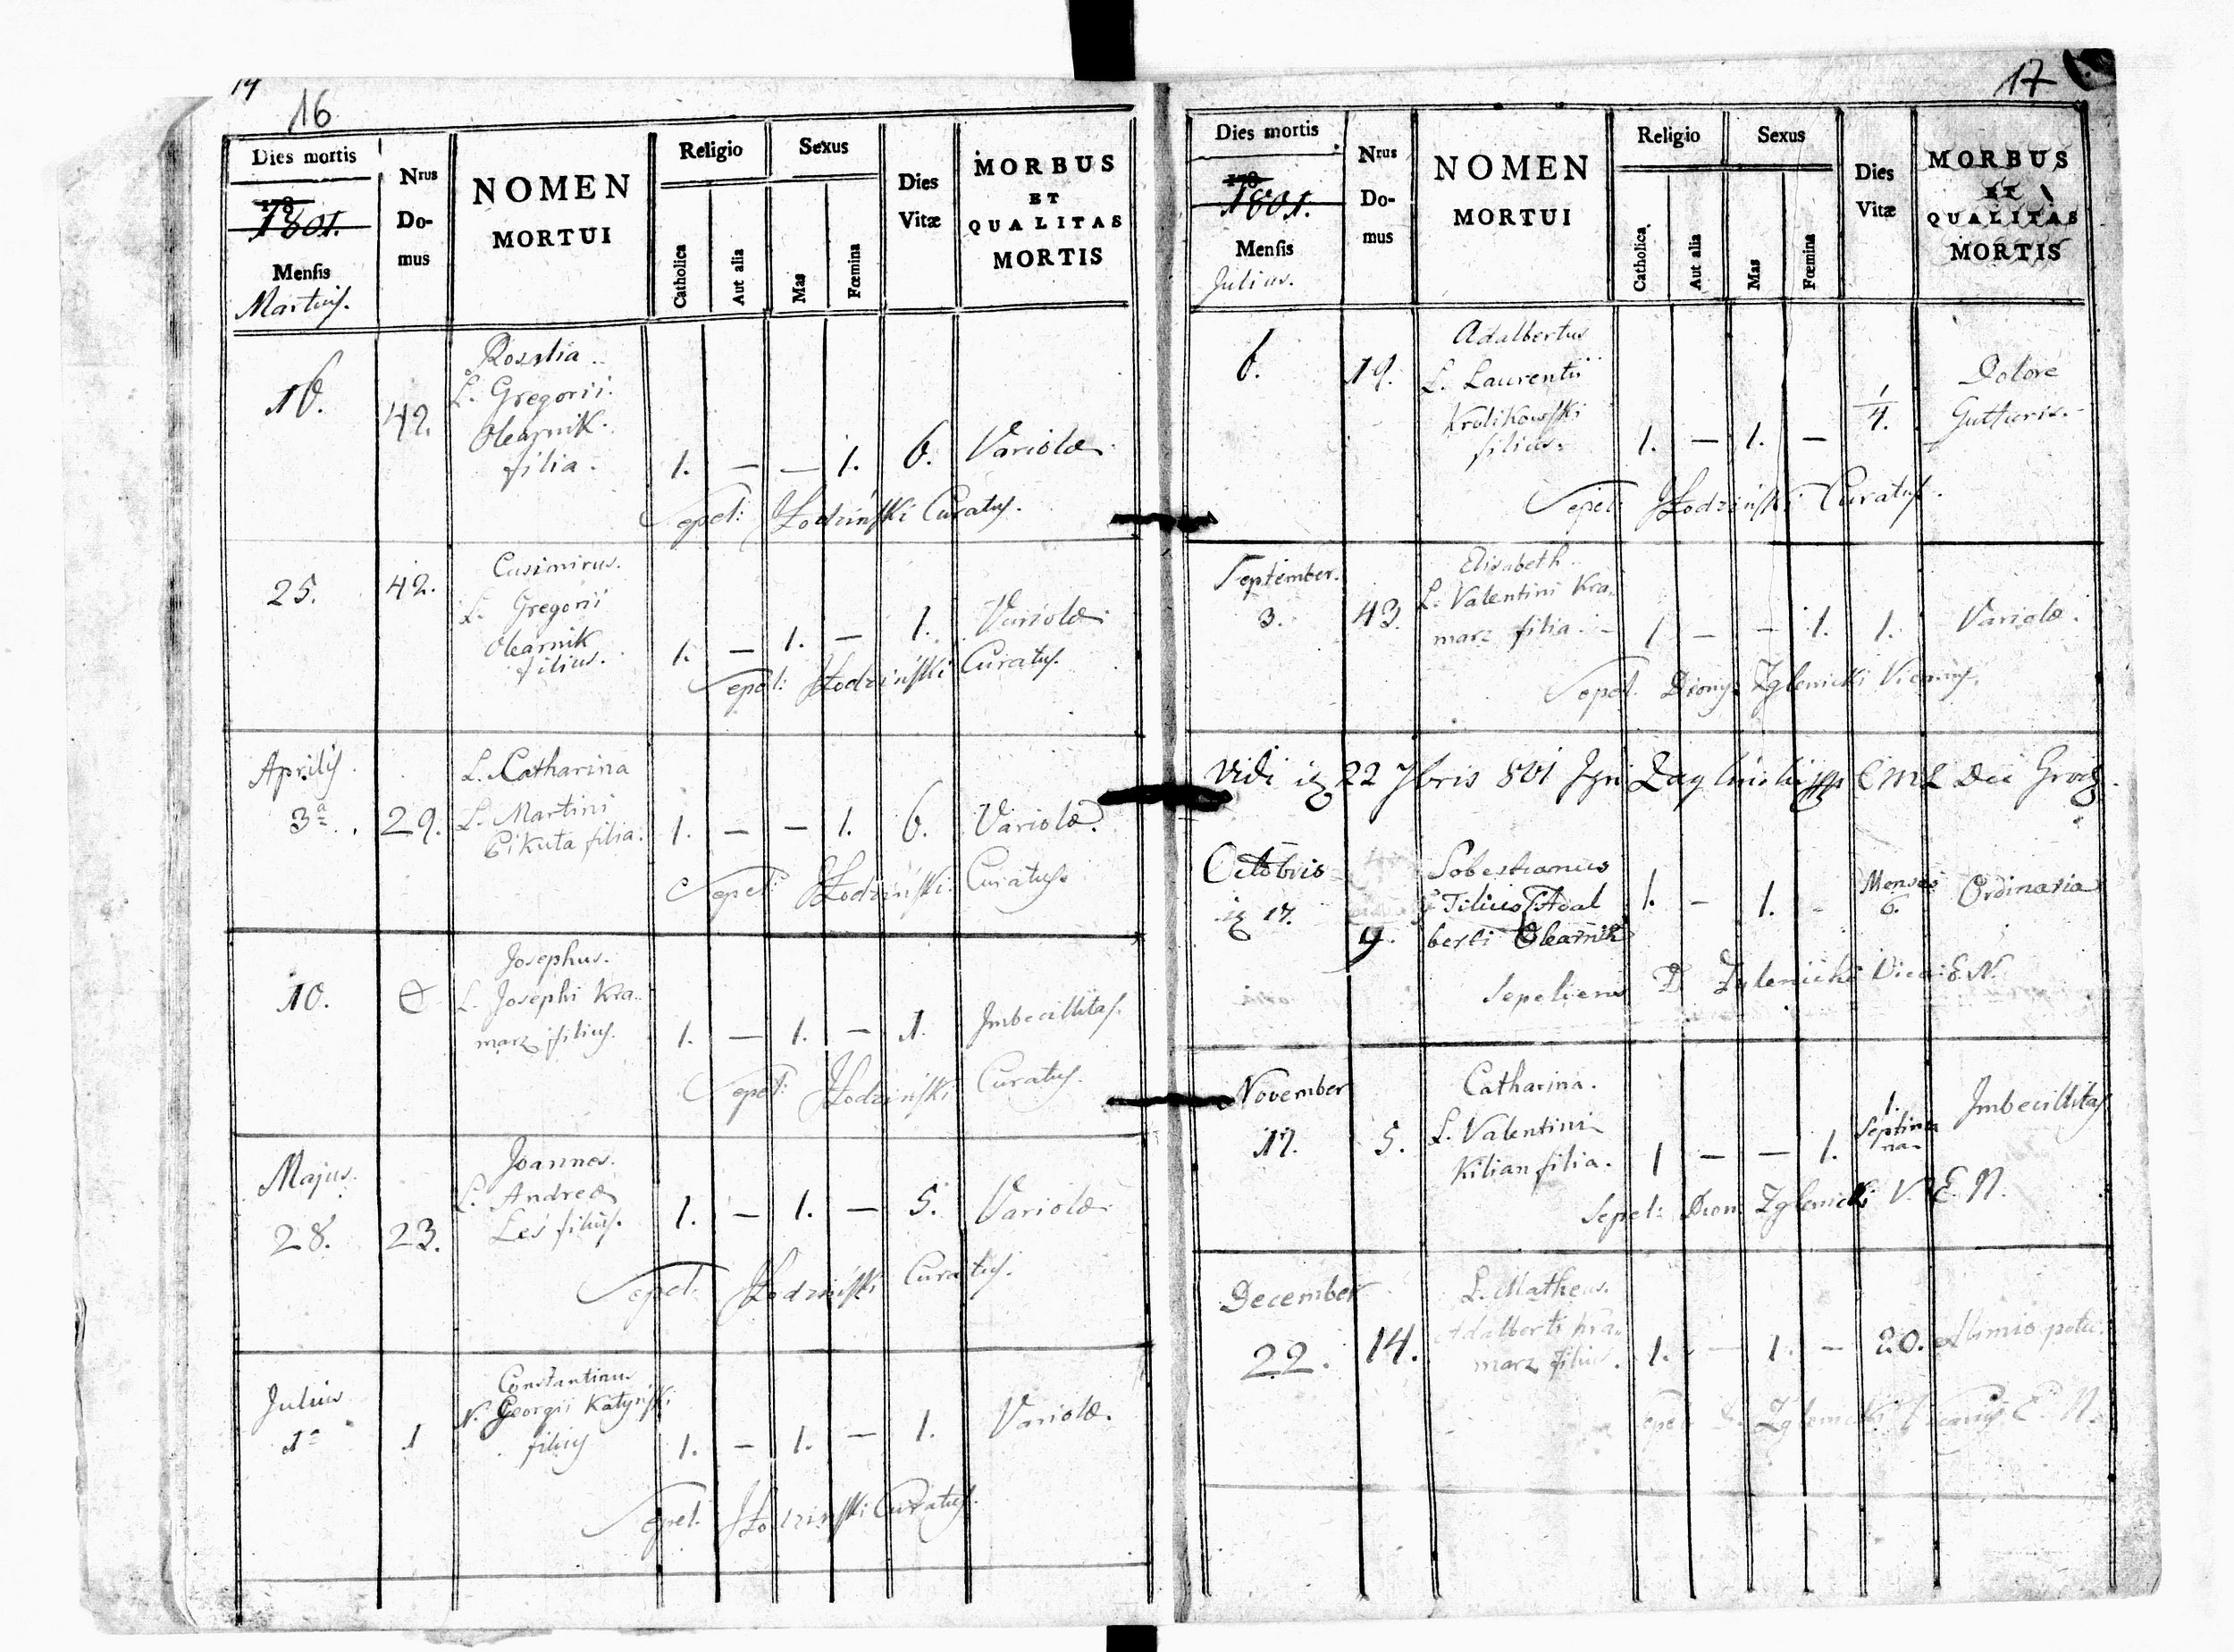 16
Dies mortis
1801.
Mensis
Martius.
Nrus
Do-
mus
NOMEN
MORTUI
Religio
Catholica
Aut alia
Sexus
Mas
Fœmina
Dies
Vitæ
MORBUS
ET
QUALITAS
MORTIS
16.
42.
Rosalia
L. Gregorii
Olearnik
filia.
1. — — 1. 6. Variolæ
Sepel: Curatus.
25.
42.
Casimirus.
L. Gregorii
Olearnik
filius.
1. — 1. — 1. Variolæ
Sepel: Curatus.
Aprilis
3ª
29.
L. Catharina
L. Martini
Cikuta filia.
1. — — 1. 6. Variolæ
Sepel: Curatus.
10.
Josephus.
L. Josephi Kra-
marz filius.
1. — 1. — 1. Imbecillitas.
Sepel: Curatus.
Majus.
28.
23.
Joannes.
L. Andreæ
Leś filius.
1. — 1. — 5. Variolæ
Sepel: Curatus.
Julius
1ª
1
Constantinus
N. Georgii Katyński
filius
1. — 1. — 1. Variolæ.
Sepel: Curatus.
17
Dies mortis
1801.
Mensis
Julius.
Nrus
Do-
mus
NOMEN
MORTUI
Religio
Catholica
Aut alia
Sexus
Mas
Fœmina
Dies
Vitæ
MORBUS
ET
QUALITAS
MORTIS
6.
19.
Adalbertus
L. Laurentii
Krolikowski
filius.
1. — 1. — 1/4. Dolore
Gutturis.
Sepel: Curatus.
September.
3.
43.
Elisabeth
L. Valentini Kra-
marz filia.
1 — — 1. 1. Variolæ.
Sepel. Dionys Zglenicki Vicarius.
Vidi 22 7bris 801
Octobris
17.
9.
Sobestianus
Filius Adal
berti Olearnik
1. — 1. - Menses
6. Ordinaria
Sepeliens D Zglenicki Vica: E.N.
November
17.
5.
Catharina.
L. Valentini
Kilian filia.
1 — — 1. 1.
Septima
na. Imbecillitas
Sepel: Dion. Zglenicki V. E. N.
December
22.
14.
L. Matheus.
Adalberti Kra-
marz filius.
1. — 1. — 20. Nimio potu.
Sepel D. Zglenicki Vicarius E. N.